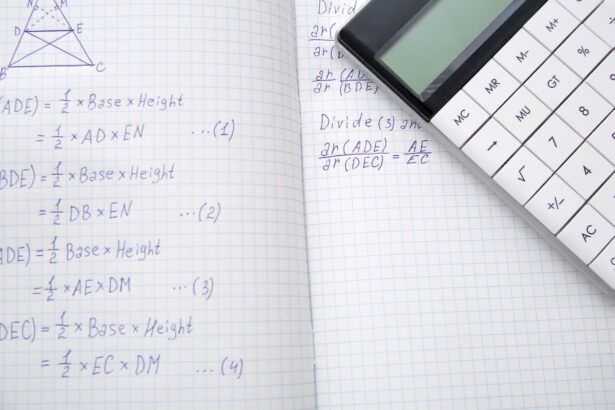 N M
D E
B C
(ADE) = 1/2 × Base × Height
= 1/2 × AD × EN ...(1)
BDE) = 1/2 × Base × Height
= 1/2 DB × EN ...(2)
ADE) = 1/2 Base × Height
= 1/2 × AE × DM ...(3)
DEC) = 1/2 × Base × Height
= 1/2 × EC × DM ...(4)
Divid
ar(
ar(
ar (A
ar (BDE)
Divide (3) an
ar (ADE) / ar (DEC) = AE / EC
M+ %
M- GT 8
MR MU 7 4
MC → √ +/- AC